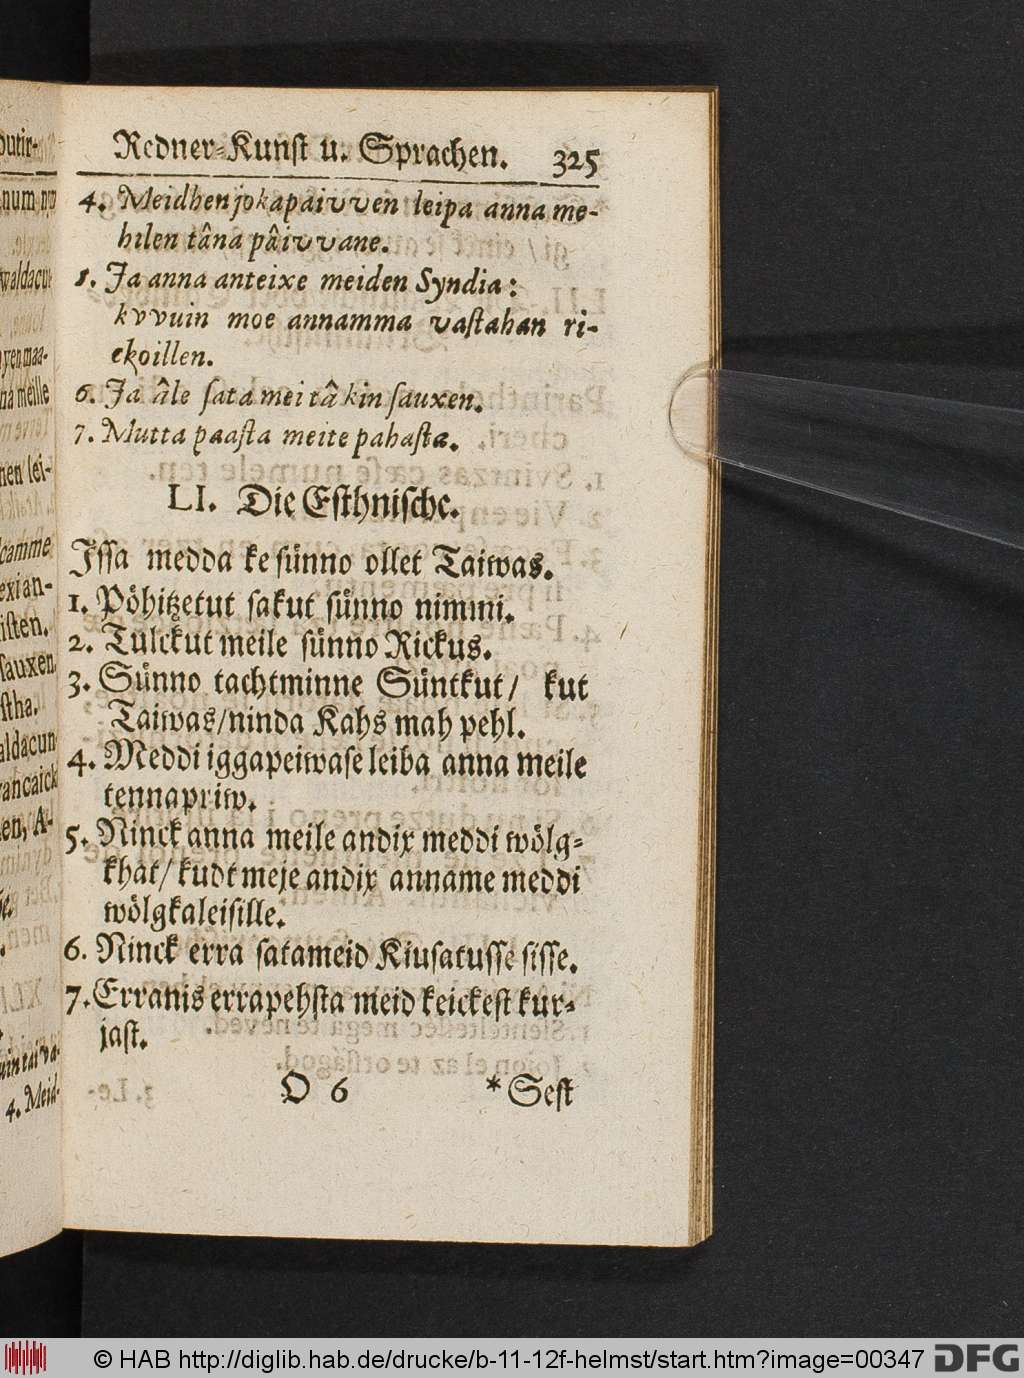 Redner-Kunst u. Sprachen. 325
4. Meidhen jokapaivven leipa anna me-
hilen tâna pâivvane.
5. Ja anna anteixe meiden Syndia:
kvvuin moe annamma vaſtahan ri-
ckoillen.
6. Ja âle ſata mei tâ kin ſauxen.
7. Mutta paaſta meite pahaſta.
LI. Die Eſthniſche.
Jſſa medda ke ſünno ollet Taiwas.
1. Pöhitzetut ſakut ſünno nimmi.
2. Tulckut meile ſünno Rickus.
3. Sünno tachtminne Süntkut/ kut
Taiwas/ninda Kahs mah pehl.
4. Meddi iggapeiwaſe leiba anna meile
tennapriw.
5. Ninck anna meile andix meddi wölg-
khat/ kudt meje andix anname meddi
wölgkaleiſille.
6. Ninck erra ſatameid Kiuſatuſſe ſiſſe.
7. Erranis errapehſta meid keickeſt kur-
jaſt.
O 6 *Seſt
© HAB http://diglib.hab.de/drucke/b-11-12f-helmst/start.htm?image=00347 DFG